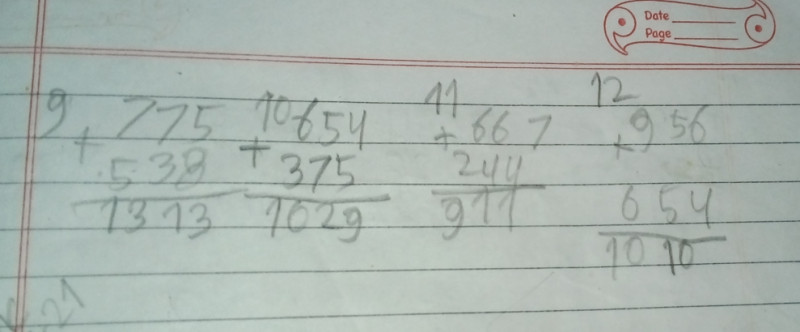 Date
Page
9 10 11 12
775 654 + 667 + 956
+ 538 + 375 244 654
1313 1029 911 1010